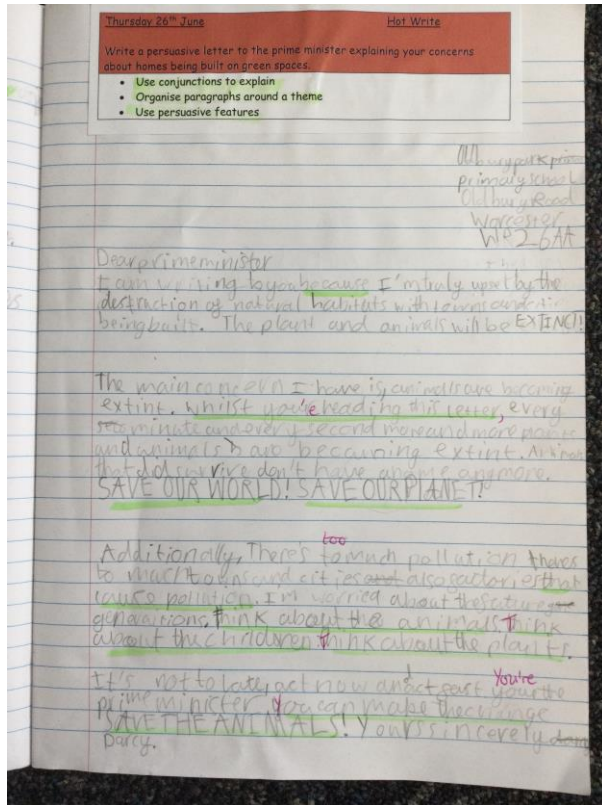 Thursday 26th June Hot Write
Write a persuasive letter to the prime minister explaining your concerns
about homes being built on green spaces.
• Use conjunctions to explain
• Organise paragraphs around a theme
• Use persuasive features
Oldbury park
primary school
Oldbury Road
Worcester
WR2 6AA
Dear prime minister
I am writing to you because I'm truly upset by the
destruction of natural habitats with towns and
being built. The plant and animals will be EXTINCT!
The main concern I have is, animals are becoming
extint. whilst you're reading this letter, every
minate and every second more and more
and animals are becuming extint.
that did survive don't have a name anymore.
SAVE OUR WORLD! SAVE OUR PLANET!
too
Additionally, There's to much pollution, theres
to much towns and cities and also factories that
cause pollution. I'm worried about the future
generaitions. think about the animals Think
about the children think about the plants.
You're
It's not to late, act now and act fast your the
prime minister. you can make the change
SAVE THE ANIMALS! Yours sincerely
Darcy.